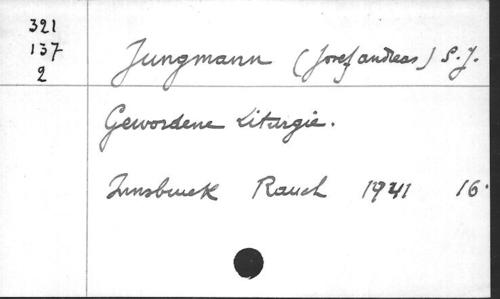 321
137
2
Jungmann (Josef andreas) S.J.
Gewordene Liturgie.
Innsbruck Rauch 1941 16°